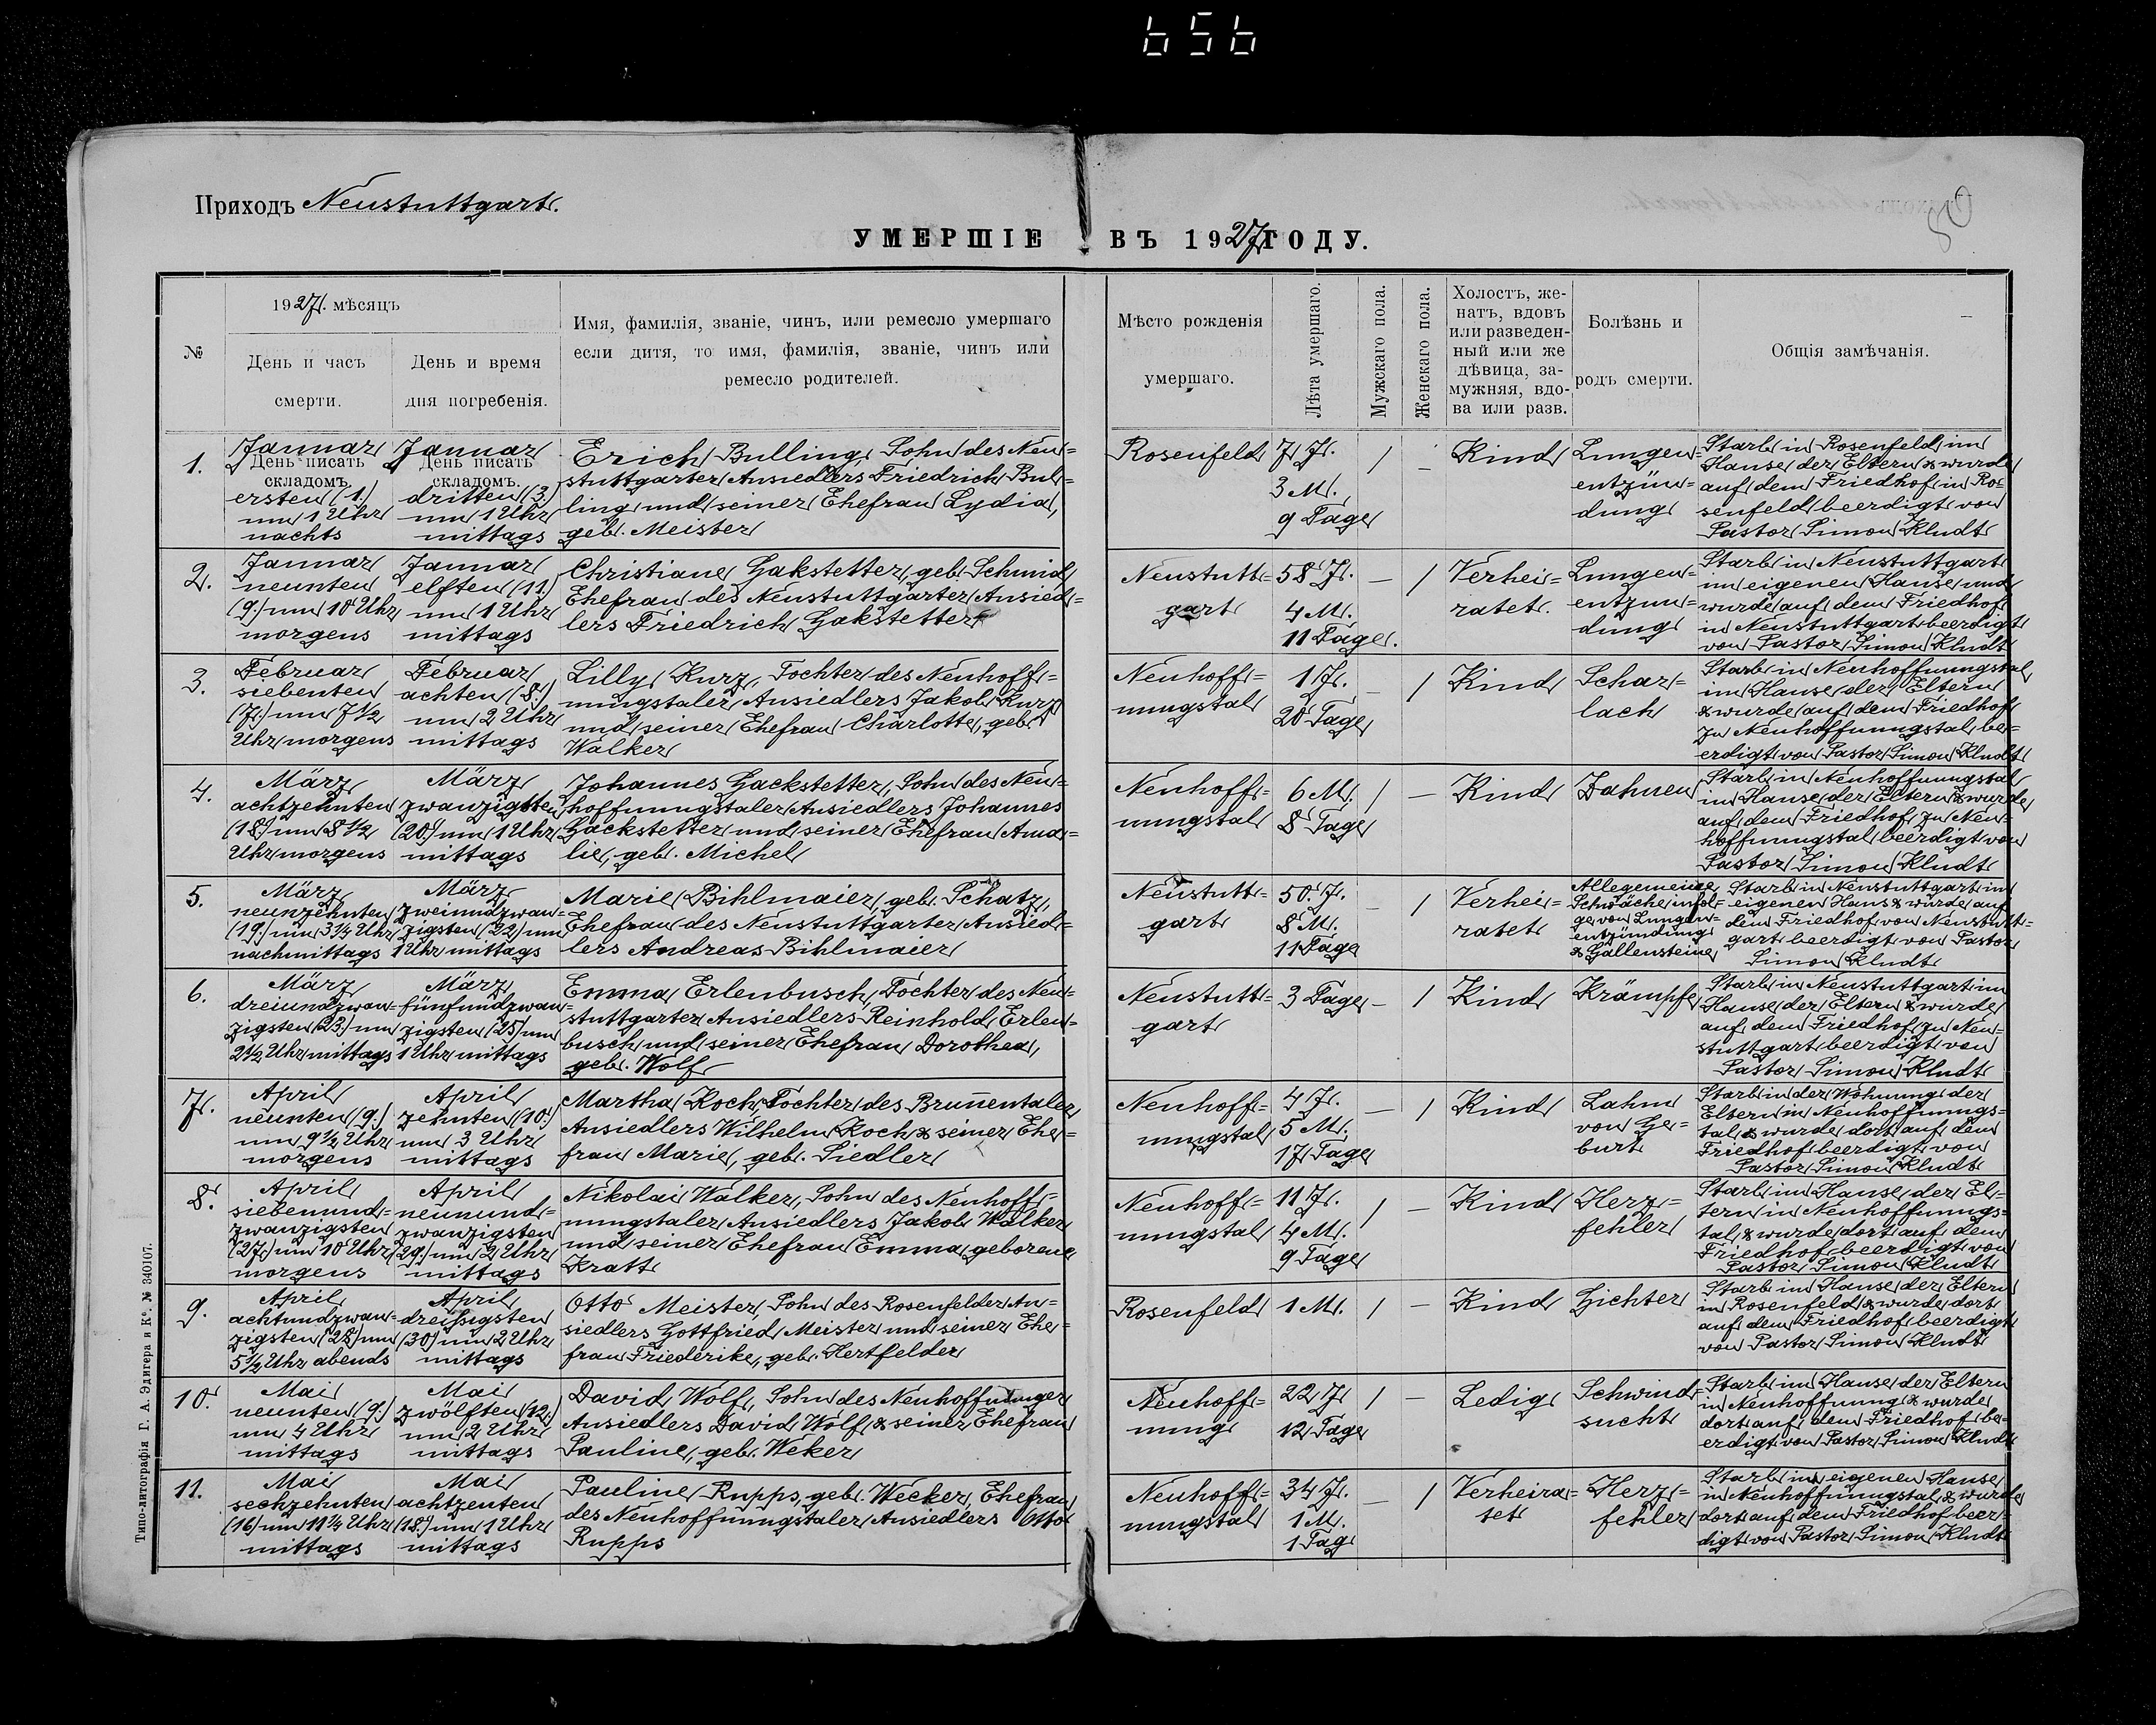 656
Приходъ Neustuttgart.
80
УМЕРШІЕ ВЪ 1927 ГОДУ.
№
1927. мѣсяцъ
День и часъ
смерти.
День и время
дня погребенія.
Имя, фамилія, званіе, чинъ, или ремесло умершаго
если дитя, то имя, фамилія, званіе, чинъ или
ремесло родителей.
Мѣсто рожденія
умершаго.
Лѣта умершаго.
Мужскаго пола.
Женскаго пола.
Холостъ, же-
натъ, вдовъ
или разведен-
ный или же
дѣвица, за-
мужняя, вдо-
ва или разв.
Болѣзнь и
родъ смерти.
Общія замѣчанія.
1.
Januar
День писать
складомъ.
ersten (1.)
um 1 Uhr
nachts
Januar
День писать
складомъ.
dritten (3.)
um 1 Uhr
mittags
Erich Bulling, Sohn des Neu=
stuttgarter Ansiedlers Friedrich Bul=
ling und seiner Ehefrau Lydia,
geb. Meister
Rosenfeld
7 J.
3 M.
9 Tage
/
—
Kind
Lungen=
entzün=
dung
Starb in Rosenfeld im
Hause der Eltern & wurde
auf dem Friedhof in Ro=
senfeld beerdigt von
Pastor Simon Kludt
2.
Januar
neunten
(9.) um 10 Uhr
morgens
Januar
elften (11.)
um 1 Uhr
mittags
Christiane Gakstetter, geb. Schmid
Ehefrau des Neustuttgarter Ansied=
lers Friedrich Gakstetter
Neustutt=
gart
58 J.
4 M.
11 Tage.
—
/
Verhei=
ratet.
Lungen=
entzun=
dung
Starb in Neustuttgart
im eigenen Hause und
wurde auf dem Friedhof
in Neustuttgart beerdigt
von Pastor Simon Kludt
3.
Februar
siebenten
(7.) um 7 1/2
Uhr morgens
Februar
achten (8.)
um 2 Uhr
mittags
Lilly Kurz, Tochter des Neuhoff=
nungstaler Ansiedlers Jakob Kurz
und seiner Ehefrau Charlotte, geb.
Walker
Neuhoff=
nungstal
1 J.
20 Tage
—
/
Kind
Schar=
lach
Starb in Neuhoffnungstal
im Hause der Eltern
& wurde auf dem Friedhof
zu Neuhoffnungstal be=
erdigt von Pastor Simon Kludt
4.
März
achtzehnten
(18.) um 8 1/2
Uhr morgens
März
zwanzigsten
(20.) um 1 Uhr
mittags
Johannes Gackstetter, Sohn des Neu=
hoffnungstaler Ansiedlers Johannes
Gackstetter und seiner Ehefrau Ama=
lie, geb. Michel
Neuhoff=
nungstal
6 M.
8 Tage
/
—
Kind
Zahnen
Starb in Neuhoffnungstal
im Hause der Eltern & wurde
auf dem Friedhof zu Neu=
hoffnungstal beerdigt von
Pastor Simon Kludt
5.
März
neunzehnten
(19.) um 3 1/4 Uhr
nachmittags
März
zweiundzwan=
zigsten (22.) um
1 Uhr mittags
Marie Bihlmaier, geb. Schatz,
Ehefrau des Neustuttgarter Ansied=
lers Andreas Bihlmaier
Neustutt=
gart
50. J.
8 M.
11 Tage
—
/
Verhei=
ratet
Allegemeine
Schwäche infol=
ge von Lungen=
entzündung
& Gallensteine
Starb in Neustuttgart im
eigenen Haus & wurde auf
dem Friedhof von Neustutt=
gart beerdigt von Pastor
Simon Kludt
6.
März
dreiundzwan=
zigsten (23.) um
2 1/2 Uhr mittags
März
fünfundzwan=
zigsten (25.) um
1 Uhr mittags
Emma Erlenbusch, Tochter des Neu=
stuttgarter Ansiedlers Reinhold Erlen=
busch und seiner Ehefrau Dorothea,
geb. Wolf
Neustutt=
gart
3 Tage
—
/
Kind
Krämpfe
Starb in Neustuttgart im
Hause der Eltern & wurde
auf dem Friedhof zu Neu=
stuttgart beerdigt von
Pastor Simon Kludt
7.
April
neunten (9.)
um 9 1/2 Uhr
morgens
April
zehnten (10.)
um 3 Uhr
mittags
Martha Koch, Tochter des Brunnentaler
Ansiedlers Wilhelm Koch & seiner Ehe=
frau Marie, geb. Siedler
Neuhoff=
nungstal
4 J.
5 M.
17 Tage
—
/
Kind
Lahm
von Ge=
burt
Starb in der Wohnung der
Eltern in Neuhoffnungs=
tal & wurde dort auf dem
Friedhof beerdigt von
Pastor Simon Kludt
8.
April
siebenund=
zwanzigsten
(27.) um 10 Uhr
morgens
April
neunund=
zwanzigsten
(29.) um 2 Uhr
mittags
Nikolai Walker, Sohn des Neuhoff=
nungstaler Ansiedlers Jakob Walker
und seiner Ehefrau Emma geborene
Kratt
Neuhoff=
nungstal
11 J.
4 M.
9 Tage
/
—
Kind
Herz=
fehler
Starb im Hause der El=
tern in Neuhoffnungs=
tal & wurde dort auf dem
Friedhof beerdigt von
Pastor Simon Kludt
9.
April
achtundzwan=
zigsten (28.) um
5 1/2 Uhr abends
April
dreißigsten
(30.) um 2 Uhr
mittags
Otto Meister, Sohn des Rosenfelder An=
siedlers Gottfried Meister und seiner Ehe=
frau Friederike, geb. Hertfelder
Rosenfeld
1 M.
/
—
Kind
Gichter
Starb im Hause der Eltern
in Rosenfeld & wurde dort
auf dem Friedhof beerdigt
von Pastor Simon Kludt
10.
Mai
neunten (9.)
um 4 Uhr
mittags
Mai
zwölften (12.)
um 2 Uhr
mittags
David Wolf, Sohn des Neuhoffnunger
Ansiedlers David Wolf & seiner Ehefrau
Pauline, geb. Weker
Neuhoff=
nung
22 J
12 Tage
/
—
Ledig
Schwind=
sucht
Starb im Hause der Eltern
in Neuhoffnung & wurde
dort auf dem Friedhof be=
erdigt von Pastor Simon Kludt
11.
Mai
sechzehnten
(16) um 11 1/4 Uhr
mittags
Mai
achtzenten
(18.) um 1 Uhr
mittags
Pauline Rupps, geb. Wecker, Ehefrau
des Neuhoffnungstaler Ansiedlers Otto
Rupps
Neuhoff=
nungstal
34 J.
1 M.
1 Tag
—
/
Verheira=
tet
Herz=
fehler
Starb im eigenen Hause
in Neuhoffnungstal & wurde
dort auf dem Friedhof beer=
digt von Pastor Simon Kludt
Типо-литографія Г. А. Эдигера и Кº. № 340107.